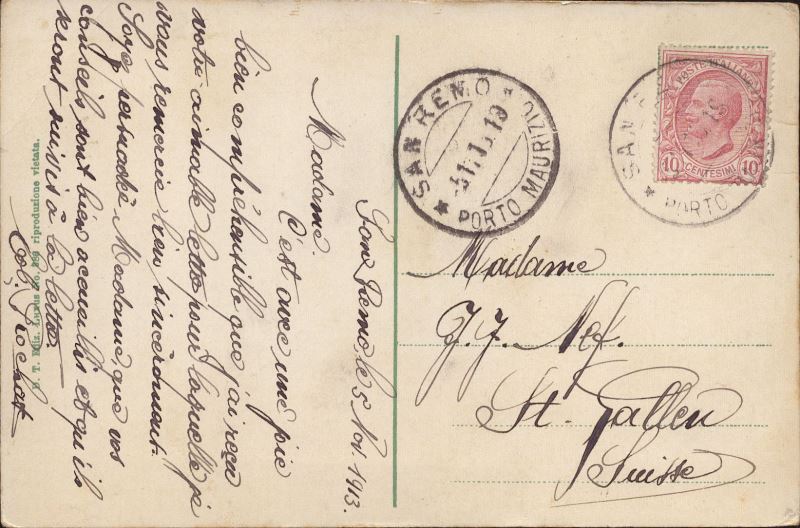 San Remo le 5 Nov. 1913.
Madame.
C'est avec une joie
bien compréhensible que j'ai reçu
votre aimable lettre pour laquelle je
vous remercie bien sincèrement.
Soyez persuadée, Madame que vos
conseils sont bien accueillis et qu'ils
seront suivis à la lettre.
riproduzione vietata.
SAN REMO
* PORTO MAURIZIO *
POSTE ITALIANE
10 CENTESIMI 10
SAN R
* PORTO
Madame
J. J. Nef.
St. Gallen
Suisse